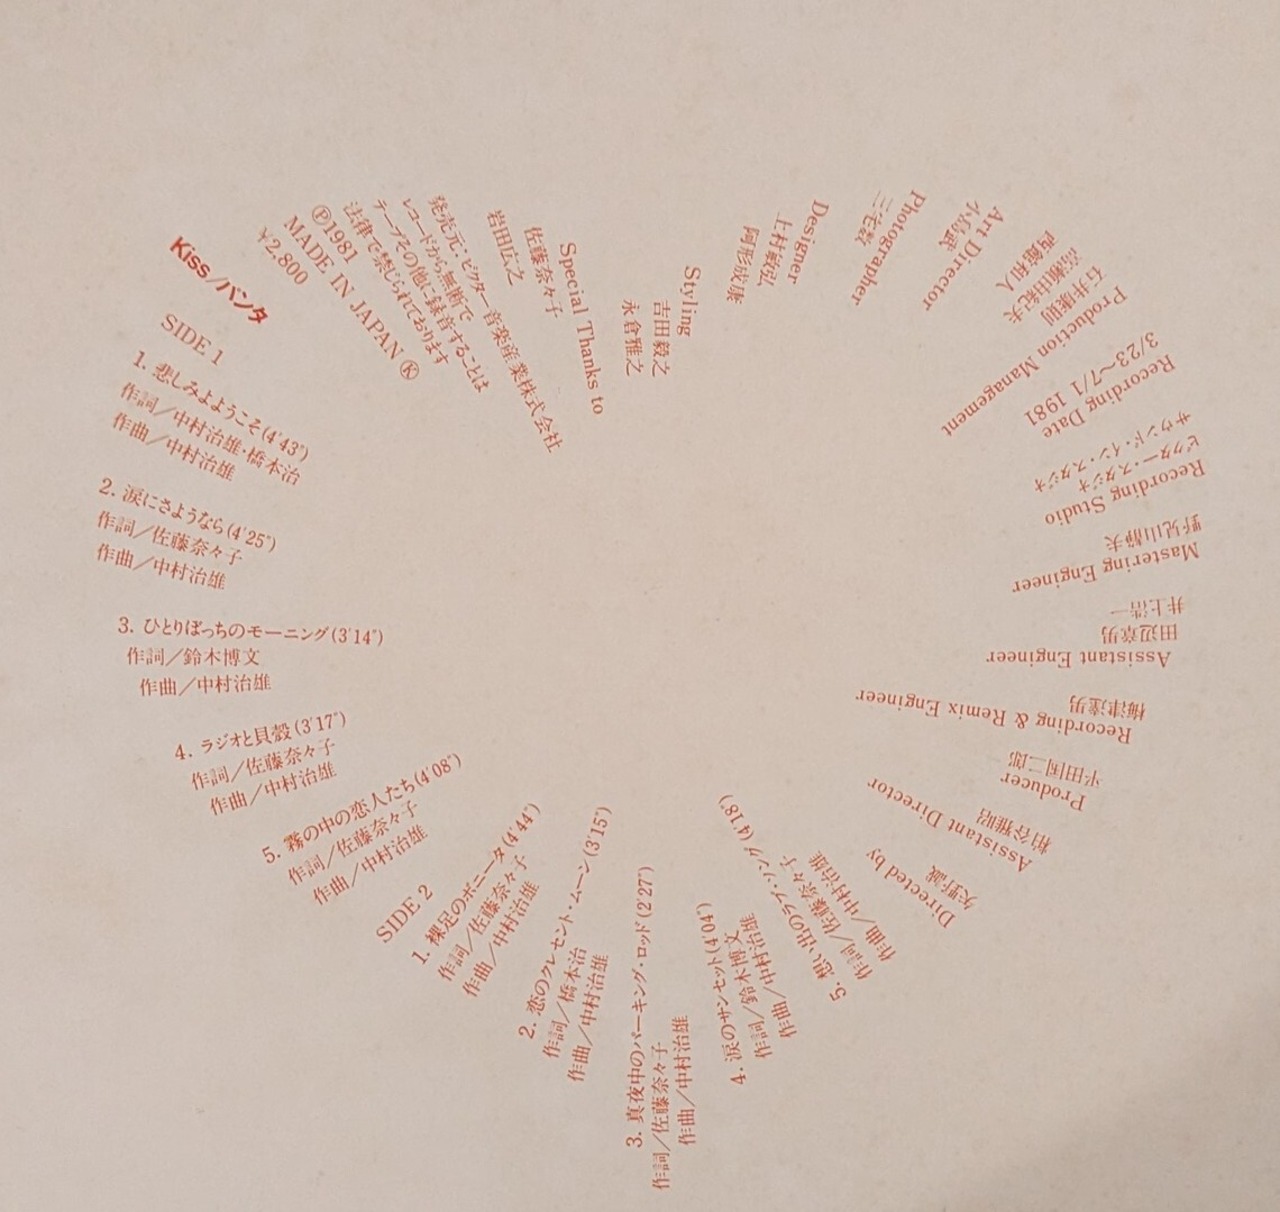 Kiss/パンタ
SIDE 1
1. 悲しみよようこそ(4'43")
作詞/中村治雄・橋本治
作曲/中村治雄
2. 涙にさようなら(4'25")
作詞/佐藤奈々子
作曲/中村治雄
3. ひとりぼっちのモーニング(3'14")
作詞/鈴木博文
作曲/中村治雄
4. ラジオと貝殻(3'17")
作詞/佐藤奈々子
作曲/中村治雄
5. 霧の中の恋人たち(4'08")
作詞/佐藤奈々子
作曲/中村治雄
SIDE 2
1. 裸足のボニータ(4'44")
作詞/佐藤奈々子
作曲/中村治雄
2. 恋のクレセント・ムーン(3'15")
作詞/橋本治
作曲/中村治雄
3. 真夜中のパーキング・ロッド(2'27")
作詞/佐藤奈々子
作曲/中村治雄
4. 涙のサンセット(4'04")
作詞/鈴木博文
作曲/中村治雄
5. 想い出のラブ・ソング(4'18")
作詞/佐藤奈々子
作曲/中村治雄
Directed by
矢野誠
Assistant Director
柏谷雅昭
Producer
平田国二郎
Recording & Remix Engineer
梅津達男
Assistant Engineer
田辺章男
井上浩一
Mastering Engineer
野見山静夫
Recording Studio
ビクター・スタジオ
サウンド・イン・スタジオ
Recording Date
3/23~7/1 1981
Production Management
石井康則
高瀬由紀夫
西舘和人
Art Director
小島武
Photographer
三宅教
Designer
上村敏弘
阿形成康
Styling
吉田毅之
永倉雅之
Special Thanks to
佐藤奈々子
岩田広之
発売元:ビクター音楽産業株式会社
レコードから無断で
テープその他に録音することは
法律で禁じられております
Ⓟ1981
MADE IN JAPAN Ⓚ
¥2,800